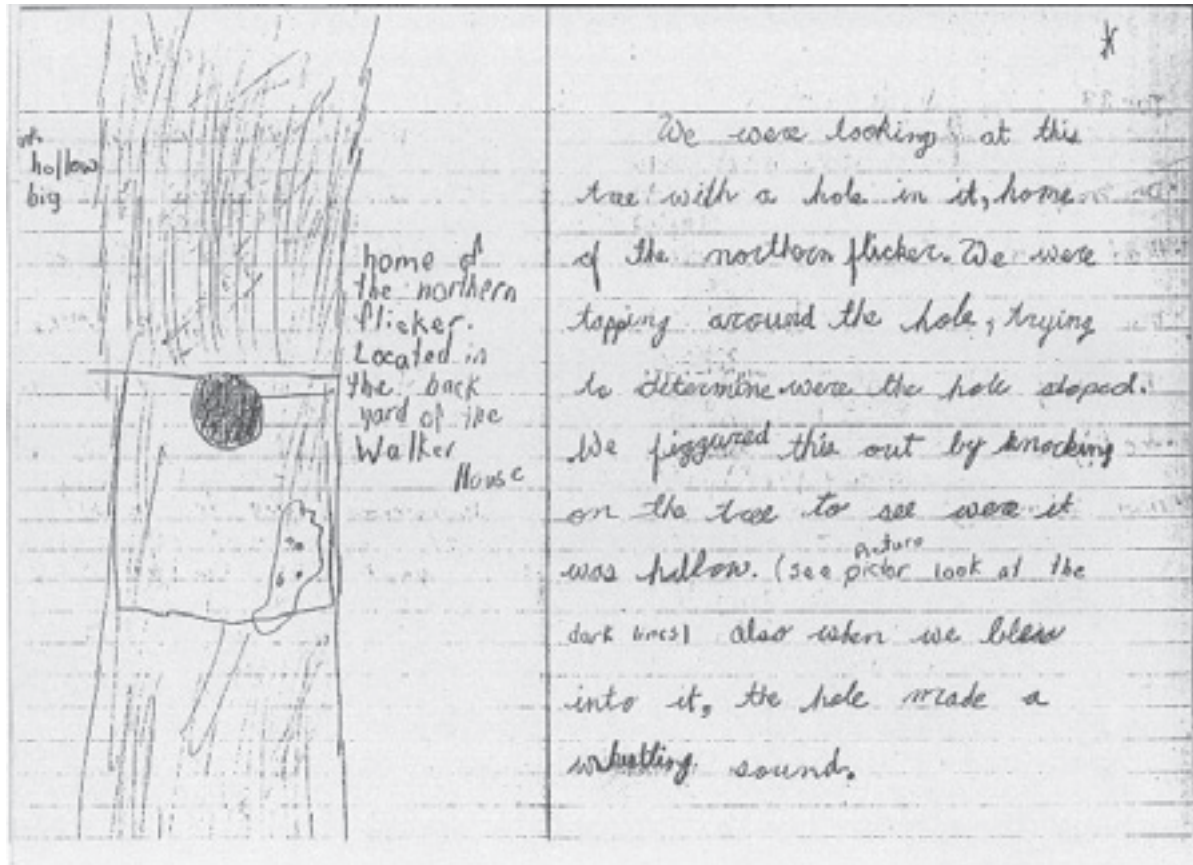 hollow
big
home of
the northern
flicker.
Located in
the back
yard of the
Walker
House
We were looking at this
tree with a hole in it, home
of the northern flicker. We were
tapping around the hole, trying
to determine were the hole stoped.
We figgured this out by knocking
on the tree to see were it
was hollow. (see pictor picture look at the
dark lines) also when we blew
into it, the hole made a
sound.